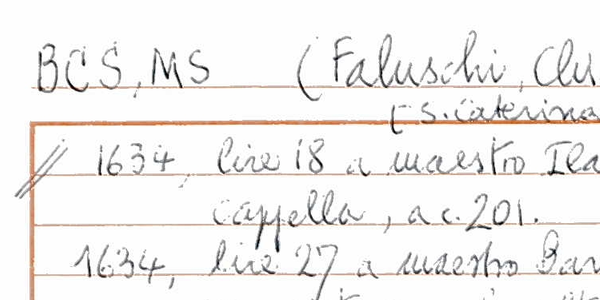 BCS, MS (Faluschi, Clu
[ S. Caterina
// 1634, lire 18 a maestro Ila
cappella, a c. 201.
1634, lire 27 a maestro Bar